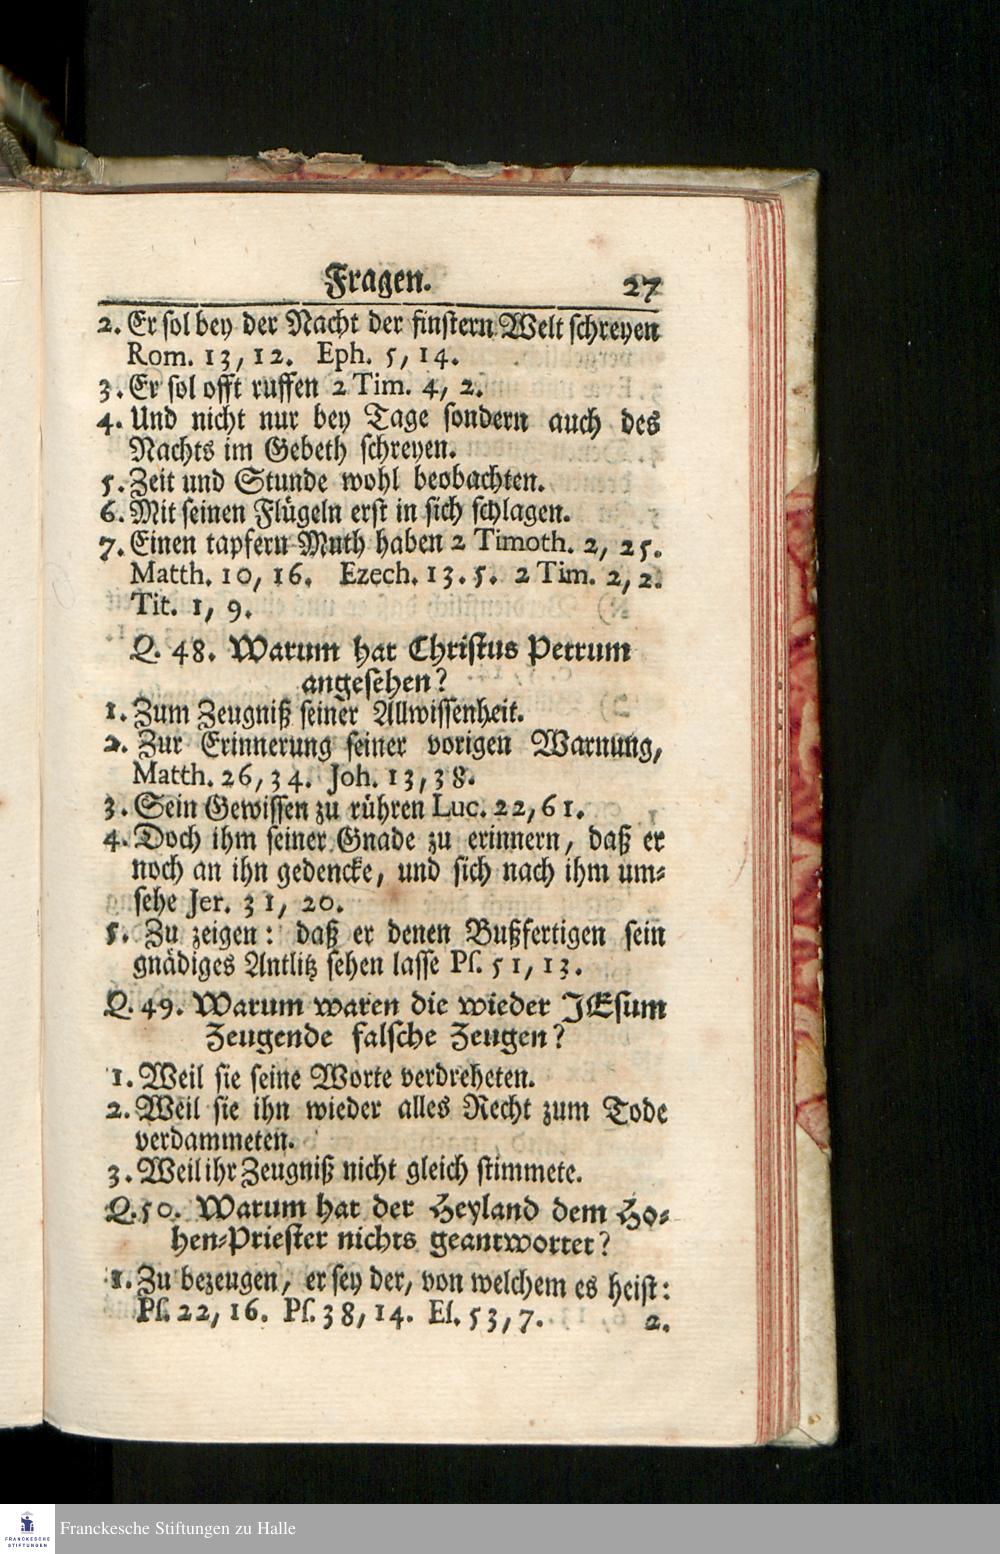 Fragen. 27
2. Er sol bey der Nacht der finstern Welt schreyen
Rom. 13, 12. Eph. 5, 14.
3. Er sol offt ruffen 2 Tim. 4, 2.
4. Und nicht nur bey Tage sondern auch des
Nachts im Gebeth schreyen.
5. Zeit und Stunde wohl beobachten.
6. Mit seinen Flügeln erst in sich schlagen.
7. Einen tapfern Muth haben 2 Timoth. 2, 25.
Matth. 10, 16. Ezech. 13. 5. 2 Tim. 2, 2.
Tit. 1, 9.
Q. 48. Warum hat Christus Petrum
angesehen?
1. Zum Zeugniß seiner Allwissenheit.
2. Zur Erinnerung seiner vorigen Warnung,
Matth. 26, 34. Joh. 13, 38.
3. Sein Gewissen zu rühren Luc. 22, 61.
4. Doch ihm seiner Gnade zu erinnern, daß er
noch an ihn gedencke, und sich nach ihm um-
sehe Jer. 31, 20.
5. Zu zeigen: daß er denen Bußfertigen sein
gnädiges Antlitz sehen lasse Ps. 51, 13.
Q. 49. Warum waren die wieder JEsum
Zeugende falsche Zeugen?
1. Weil sie seine Worte verdreheten.
2. Weil sie ihn wieder alles Recht zum Tode
verdammeten.
3. Weil ihr Zeugniß nicht gleich stimmete.
Q. 50. Warum hat der Heyland dem Ho-
hen-Priester nichts geantwortet?
1. Zu bezeugen, er sey der, von welchem es heist:
Ps. 22, 16. Ps. 38, 14. Es. 53, 7. 2.
FRANCKESCHE
STIFTUNGEN
Franckesche Stiftungen zu Halle